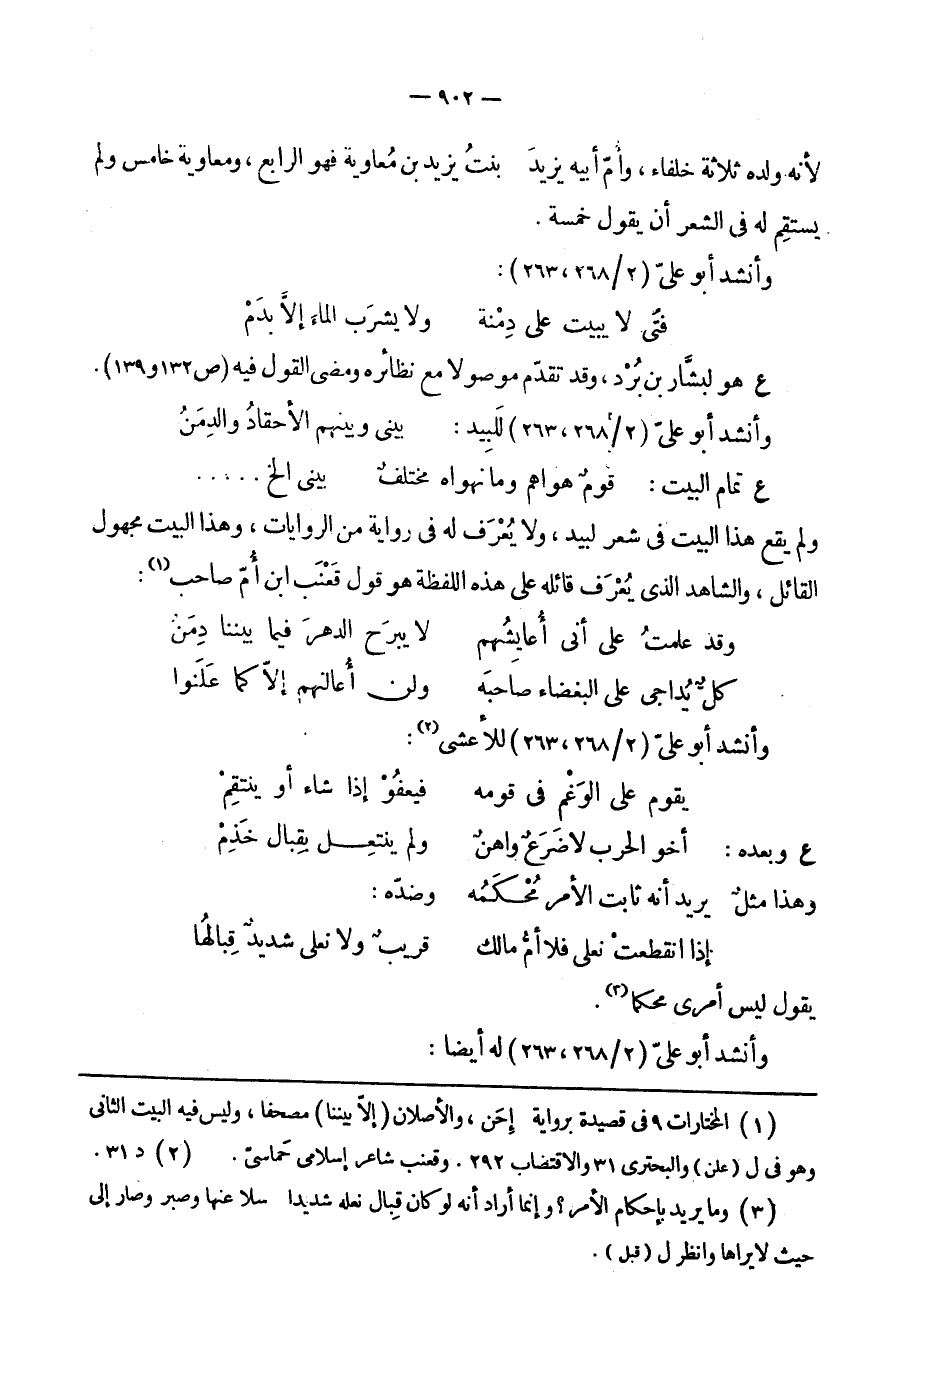 — ٩٠٢ —
لأنه ولده ثلاثة خلفاء ، وأُمّ أبيه يزيدَ بنتُ يزيد بن مُعاوية فهو الرابع ، ومعاوية خامس ولم
يستقِم له فى الشعر أن يقول خمسة .
وأنشد أبو علىّ (٢/ ٢٦٨، ٢٦٣) :
فتًى لا يبيت على دِمْنة ولا يشرَب الماءَ إلاَّ بدَمْ
ع هو لبشَّار بن بُرْد ، وقد تقدّم موصولا مع نظائره ومضى القول فيه (ص ١٣٢ و ١٣٩) .
وأنشد أبو علىّ (٢/ ٢٦٨، ٢٦٣) لَلَبِيد : بينى وبينهم الأحقادُ والدِمَنُ
ع تمام البيت : قومٌ هواهم وما نهواه مختلفٌ بينى الخ . . . . .
ولم يقع هذا البيت فى شعر لبيد ، ولا يُعْرَف له فى رواية من الروايات ، وهذا البيت مجهول
القائل ، والشاهد الذى يُعْرَف قائله على هذه اللفظة هو قول قَعْنَب ابن أُمّ صاحب (١) :
وقد علمتُ على أنى أُعايِشُهم لا يبرَح الدهرَ فيما بيننا دِمَنُ
كلٌّ يُداجى على البغضاء صاحبَه ولن أُعالنهم إلاّ كما عَلَنوا
وأنشد أبو علىّ (٢/ ٢٦٨، ٢٦٣) للأعشى (٢) :
يقوم على الوَغْم فى قومه فيعفُوْ إذا شاء أو ينتقِمْ
ع وبعده : أخو الحرب لا ضَرَعٌ واهنٌ ولم ينتعِل بقِبال خَذِمْ
وهذا مثلٌ يريد أنه ثابت الأمر مُحْكَمُه وضدّه :
إذا انقطعتْ نعلى فلا أمُّ مالك قريبٌ ولا نعلى شديدٌ قِبالُها
يقول ليس أمرى محكما (٣) .
وأنشد أبو علىّ (٢/ ٢٦٨، ٢٦٣) له أيضا :
(١) المختارات ٩ فى قصيدة برواية إحَن ، والأصلان (إلاّ بيننا) مصحفا ، وليس فيه البيت الثانى
وهو فى ل (علن) والبحترى ٣١ والاقتضاب ٢٩٢ . وقعنب شاعر إسلامى حَماسىّ . (٢) د ٣١ .
(٣) وما يريد بإحكام الأمر؟ وإنما أراد أنه لو كان قِبال نعله شديدا سلا عنها وصبر وصار إلى
حيث لا يراها وانظر ل (قبل) .